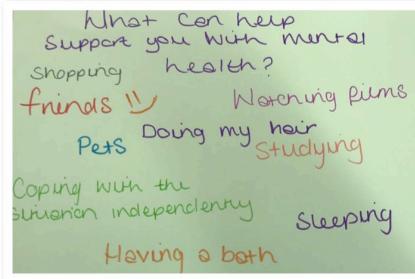 What can help
support you with mental
health?
Shopping
friends
Watching films
Doing my hair
Pets
Studying
Coping with the
situation independently
Sleeping
Having a bath